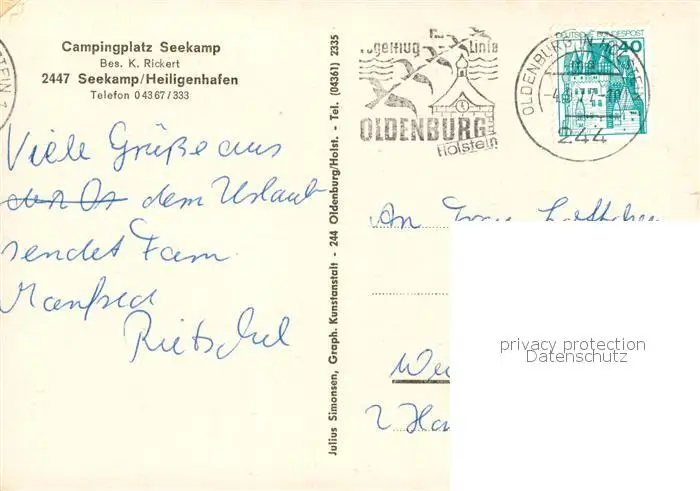 Campingplatz Seekamp
Bes. K. Rickert
2447 Seekamp/Heiligenhafen
Telefon 04367/333
Viele Grüße aus
dem Urlaub
sendet Fam.
Manfred
Rietschel
Julius Simonsen, Graph. Kunstanstalt - 244 Oldenburg/Holst. - Tel. (04361) 2335
Vogelflug Linie
OLDENBURG
Holstein
DEUTSCHE BUNDESPOST
40
OLDENBURG IN HOLST
244
An
2 Ha
privacy protection
Datenschutz